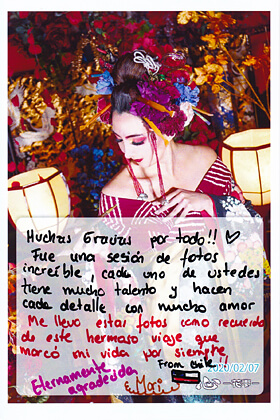 Muchas Gracias por todo!! ♡
Fue una sesión de fotos
increíble, cada uno de ustedes
tiene mucho talento y hacen
cada detalle con mucho amor
Me llevo estas fotos como recuerdo
de este hermoso viaje que
marcó mi vida por siempre!!
From Chile
Eternamente
agradecida
2020/02/07